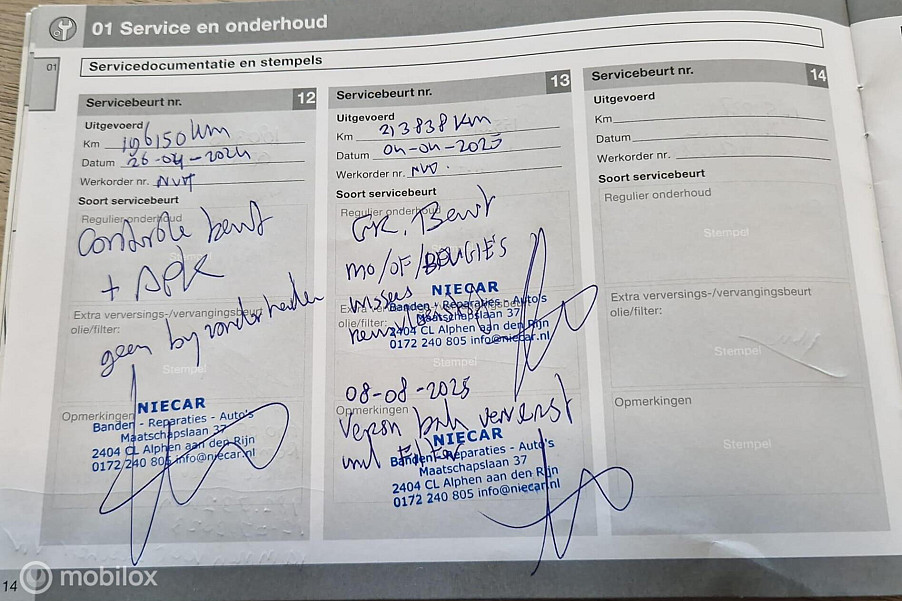 01 Service en onderhoud
01
Servicedocumentatie en stempels
Servicebeurt nr. 12
Uitgevoerd
Km 196150 km
Datum 26-04-2024
Werkorder nr. NVT
Soort servicebeurt
Regulier onderhoud
Controle beurt
+ APK
Extra verversings-/vervangingsbeurt
olie/filter:
geen byzonderheden
Stempel
Opmerkingen
NIECAR
Banden - Reparaties - Auto's
Maatschapslaan 37
2404 CL Alphen aan den Rijn
0172 240 805 info@niecar.nl
Servicebeurt nr. 13
Uitgevoerd
Km 213838 km
Datum 04-04-2025
Werkorder nr. NVT.
Soort servicebeurt
Regulier onderhoud
GR. Beurt
MO/OF/BOUGIES
NIECAR
Banden - Reparaties - Auto's
Maatschapslaan 37
2404 CL Alphen aan den Rijn
0172 240 805 info@niecar.nl
Extra verversings-/vervangingsbeurt
olie/filter:
Stempel
08-08-2025
Opmerkingen
bak ververst
NIECAR
Banden - Reparaties - Auto's
Maatschapslaan 37
2404 CL Alphen aan den Rijn
0172 240 805 info@niecar.nl
Servicebeurt nr. 14
Uitgevoerd
Km
Datum
Werkorder nr.
Soort servicebeurt
Regulier onderhoud
Stempel
Extra verversings-/vervangingsbeurt
olie/filter:
Stempel
Opmerkingen
Stempel
14
mobilox